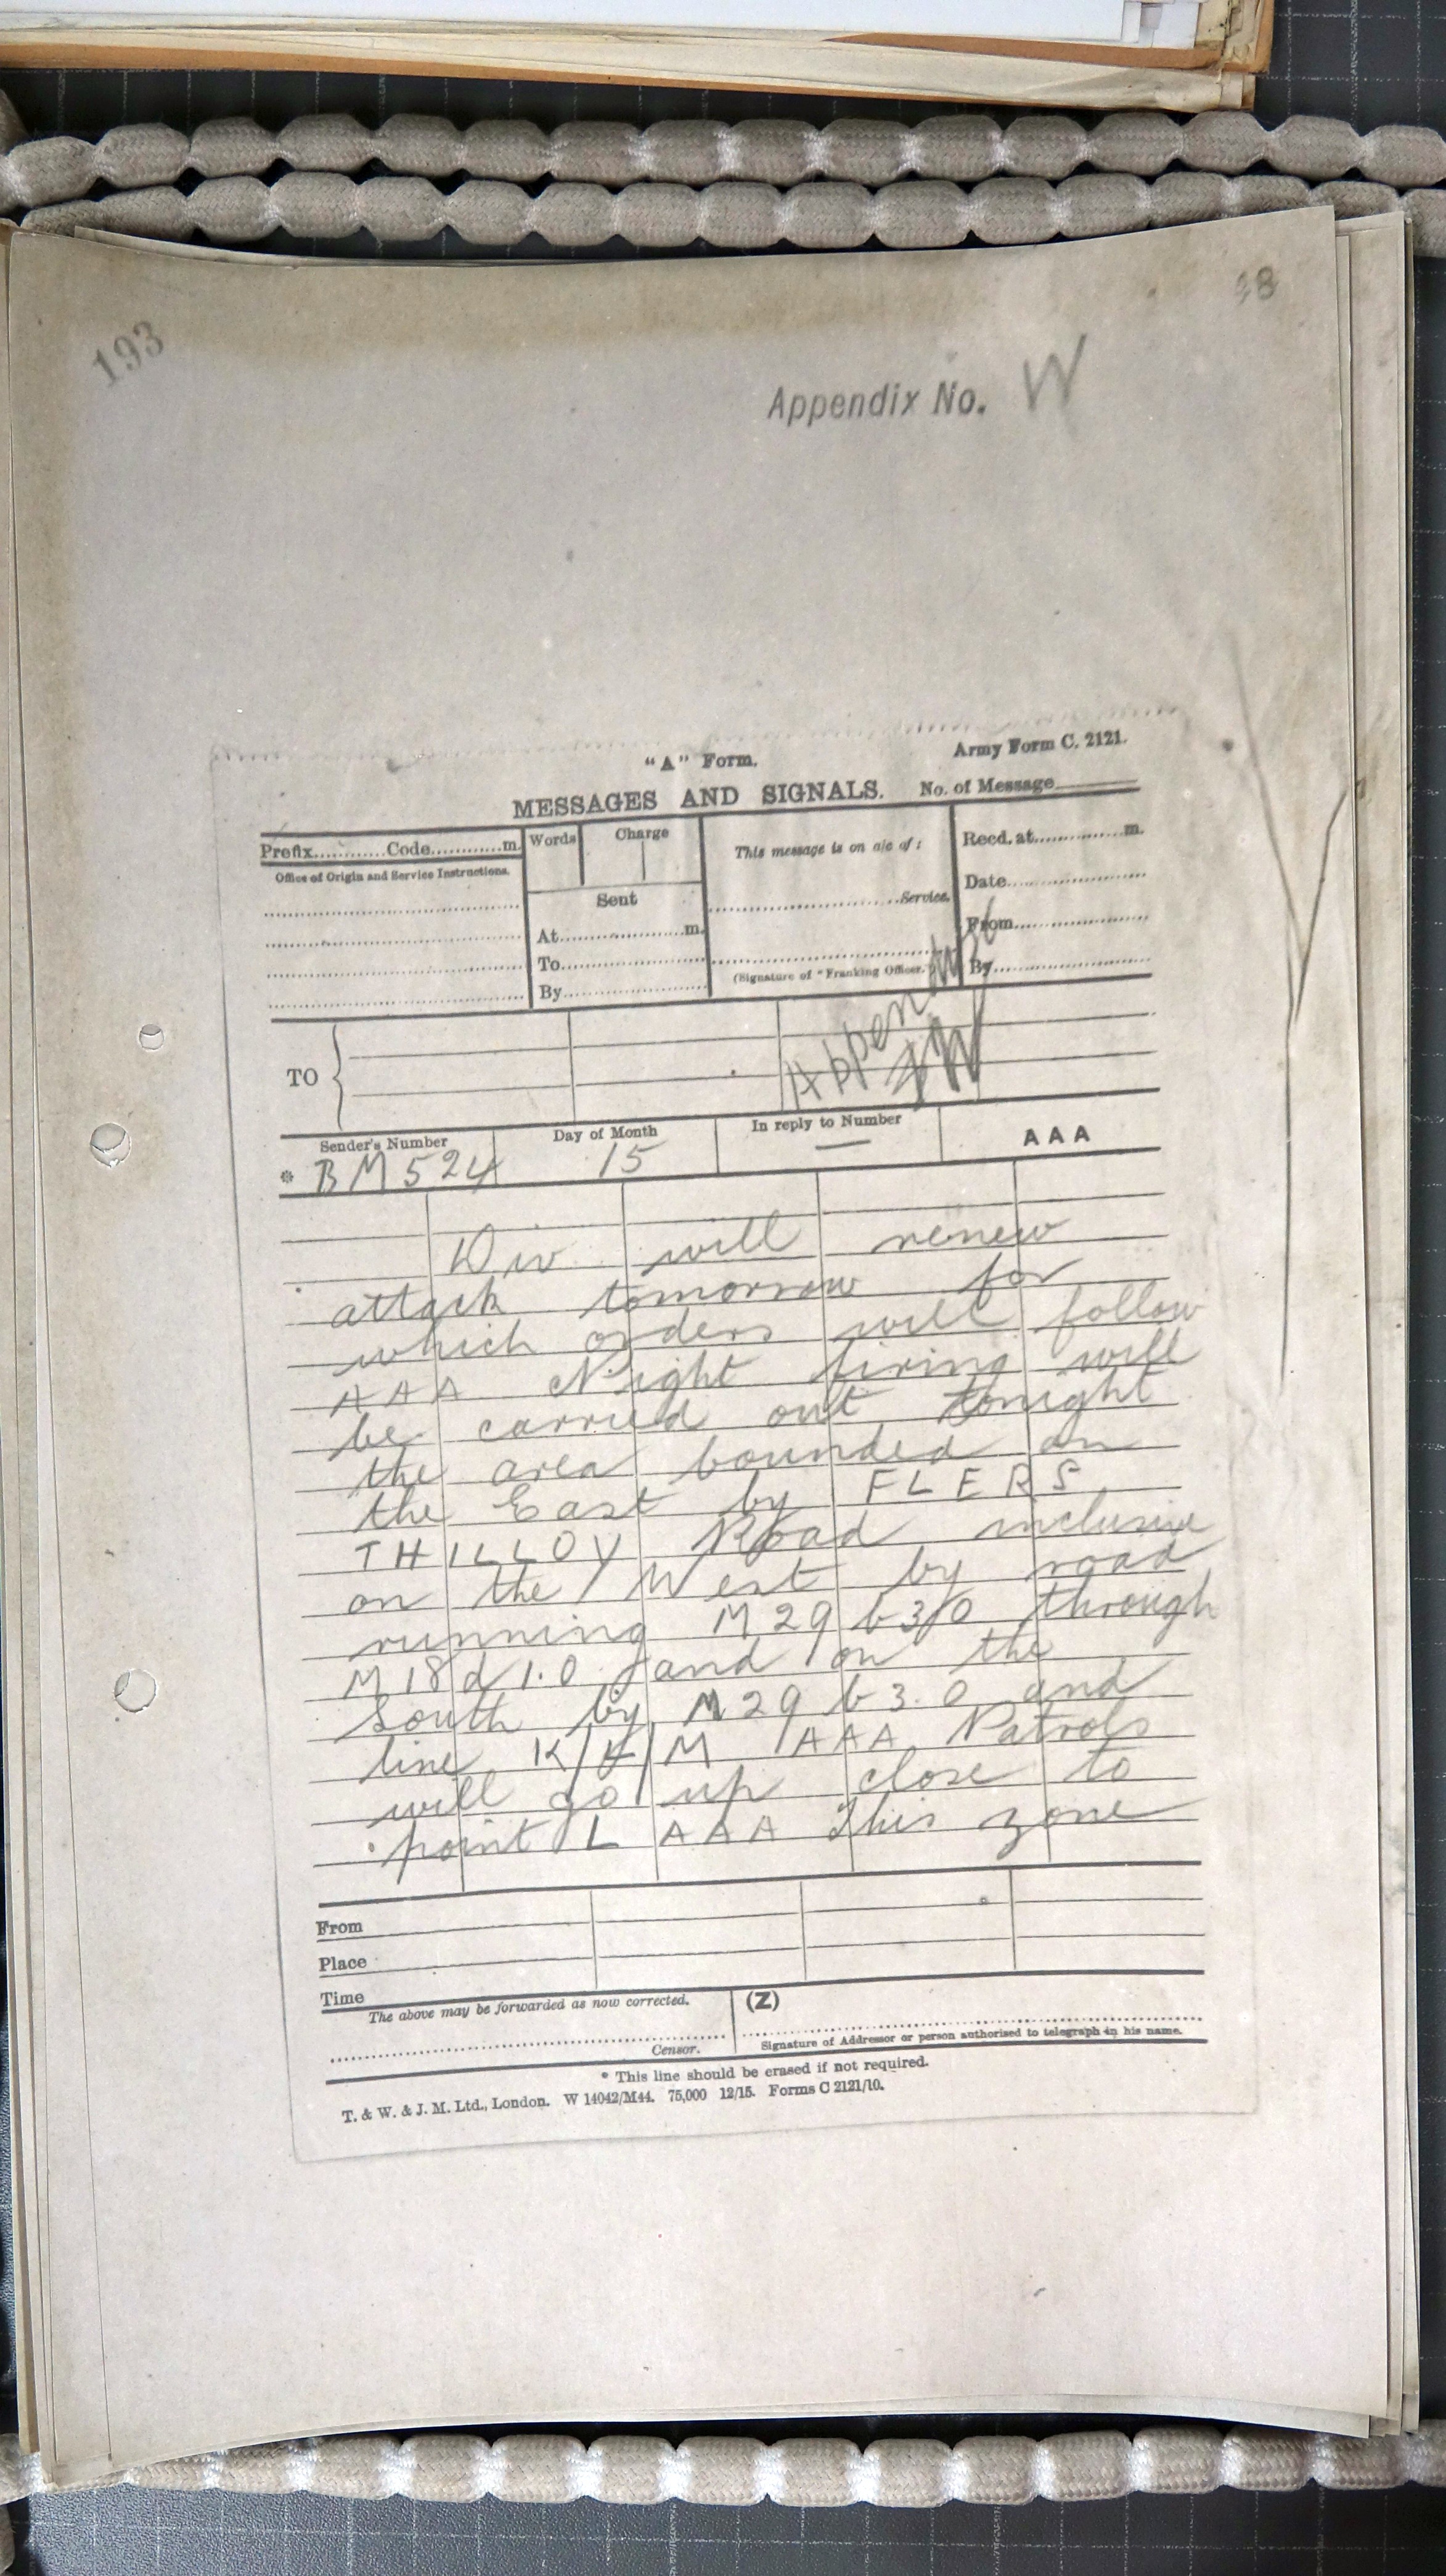 193
48
Appendix No. W
"A" Form.
Army Form C. 2121.
MESSAGES AND SIGNALS.
No. of Message
Prefix............Code............m.
Words
Charge
This message is on a/c of :
Recd. at..............m.
Office of Origin and Service Instructions.
Sent
Service.
Date
At..................m.
From
To
(Signature of "Franking Officer.")
By
By
TO
Appendix
W
Sender's Number
Day of Month
In reply to Number
AAA
* BM524
15
—
Div will renew
attack tomorrow for
which orders will follow
AAA Night firing will
be carried out tonight
the area bounded on
the East by FLERS
THILLOY Road inclusive
on the West by road
running M29 b 3/0 through
M18 d 1.0 and on the
South by M29 b 3.0 and
line K/L/M AAA Patrols
will go up close to
point L AAA This zone
From
Place
Time
The above may be forwarded as now corrected.
(Z)
Censor.
Signature of Addressor or person authorised to telegraph in his name.
* This line should be erased if not required.
T. & W. & J. M. Ltd., London. W 14042/M44. 75,000 12/15. Forms C 2121/10.